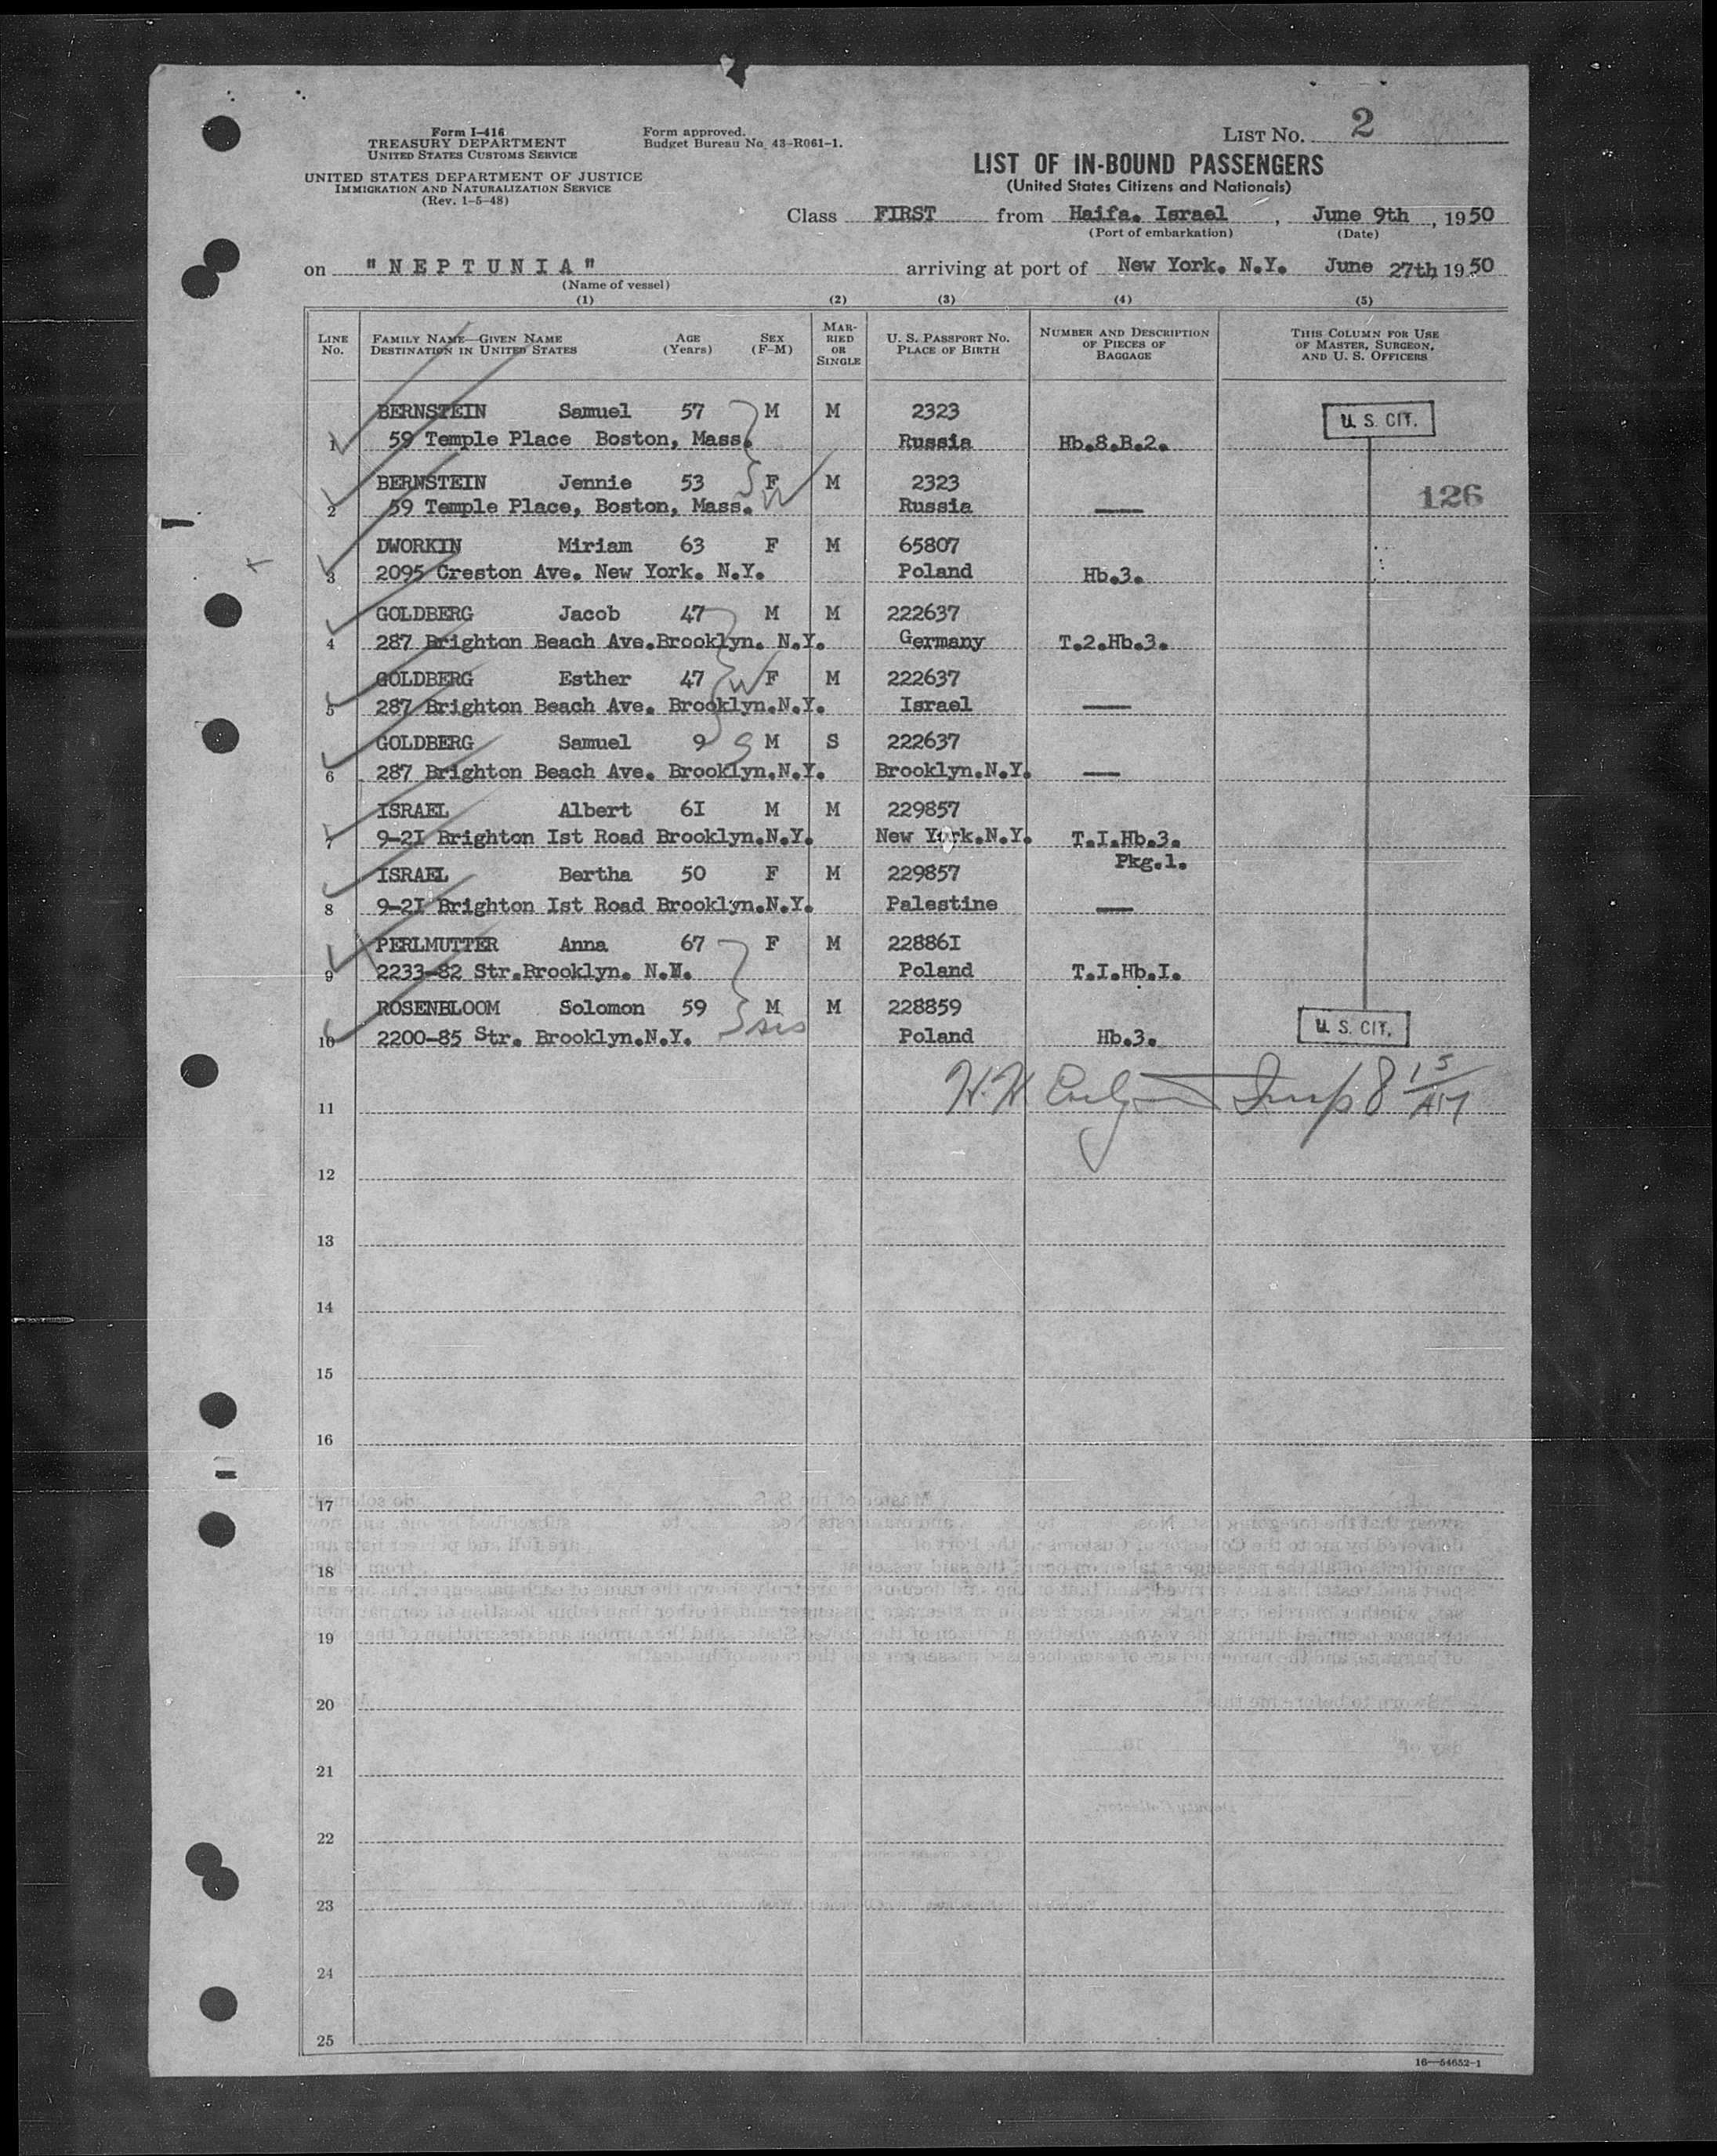 Form I-416
TREASURY DEPARTMENT
UNITED STATES CUSTOMS SERVICE
UNITED STATES DEPARTMENT OF JUSTICE
IMMIGRATION AND NATURALIZATION SERVICE
(Rev. 1-5-48)
Form approved.
Budget Bureau No. 43-R061-1.
LIST NO. 2
LIST OF IN-BOUND PASSENGERS
(United States Citizens and Nationals)
Class FIRST from Haifa. Israel , June 9th , 1950
(Port of embarkation) (Date)
on "NEPTUNIA" arriving at port of New York. N.Y. June 27th, 1950
(Name of vessel)
(1) (2) (3) (4) (5)
LINE No. FAMILY NAME—GIVEN NAME DESTINATION IN UNITED STATES AGE (Years) SEX (F-M) MARRIED OR SINGLE U. S. PASSPORT NO. PLACE OF BIRTH NUMBER AND DESCRIPTION OF PIECES OF BAGGAGE THIS COLUMN FOR USE OF MASTER, SURGEON, AND U. S. OFFICERS
BERNSTEIN Samuel 57 M M 2323 U. S. CIT.
1 59 Temple Place Boston, Mass. Russia Hb.8.B.2.
BERNSTEIN Jennie 53 F M 2323 126
2 59 Temple Place, Boston, Mass. W Russia —
DWORKIN Miriam 63 F M 65807
3 2095 Creston Ave. New York. N.Y. Poland Hb.3.
GOLDBERG Jacob 47 M M 222637
4 287 Brighton Beach Ave.Brooklyn. N.Y. Germany T.2.Hb.3.
GOLDBERG Esther 47 W F M 222637
5 287 Brighton Beach Ave. Brooklyn.N.Y. Israel —
GOLDBERG Samuel 9 S M S 222637
6 287 Brighton Beach Ave. Brooklyn.N.Y. Brooklyn.N.Y. —
ISRAEL Albert 6I M M 229857
7 9-2I Brighton Ist Road Brooklyn.N.Y. New York.N.Y. T.I.Hb.3.
Pkg.1.
ISRAEL Bertha 50 F M 229857
8 9-2I Brighton Ist Road Brooklyn.N.Y. Palestine —
PERLMUTTER Anna 67 F M 22886I
9 2233-82 Str.Brooklyn. N.Y. Poland T.I.Hb.I.
ROSENBLOOM Solomon 59 M M 228859
10 2200-85 Str. Brooklyn.N.Y. sis Poland Hb.3. U. S. CIT.
11
12
13
14
15
16
17
18
19
20
21
22
23
24
25
16—54652-1